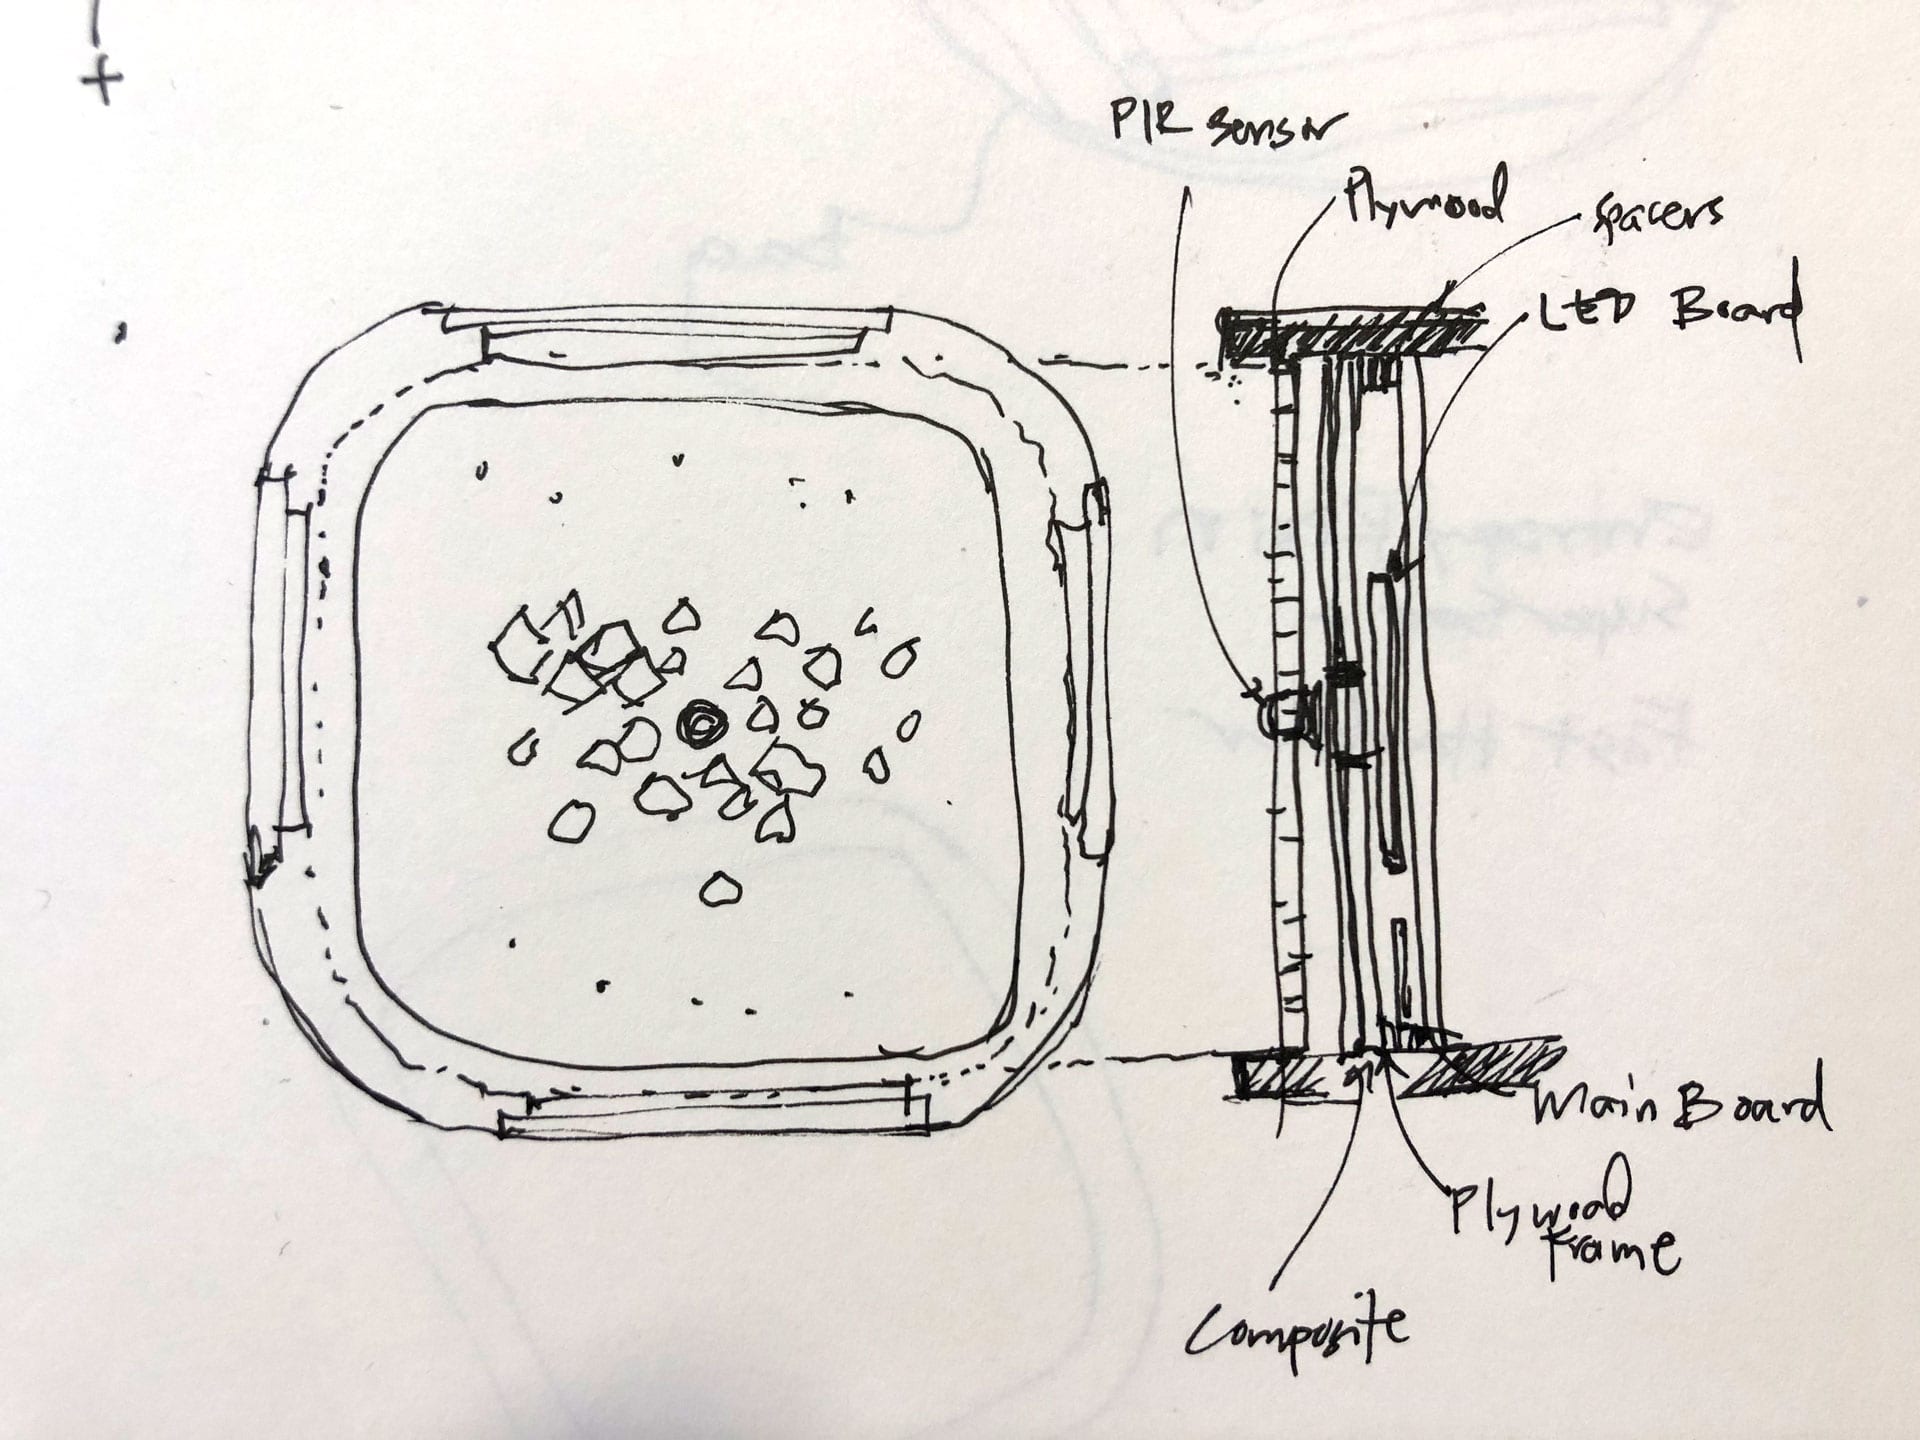 PIR sensor
Plywood
spacers
LED Board
Main Board
Plywood
Frame
Composite